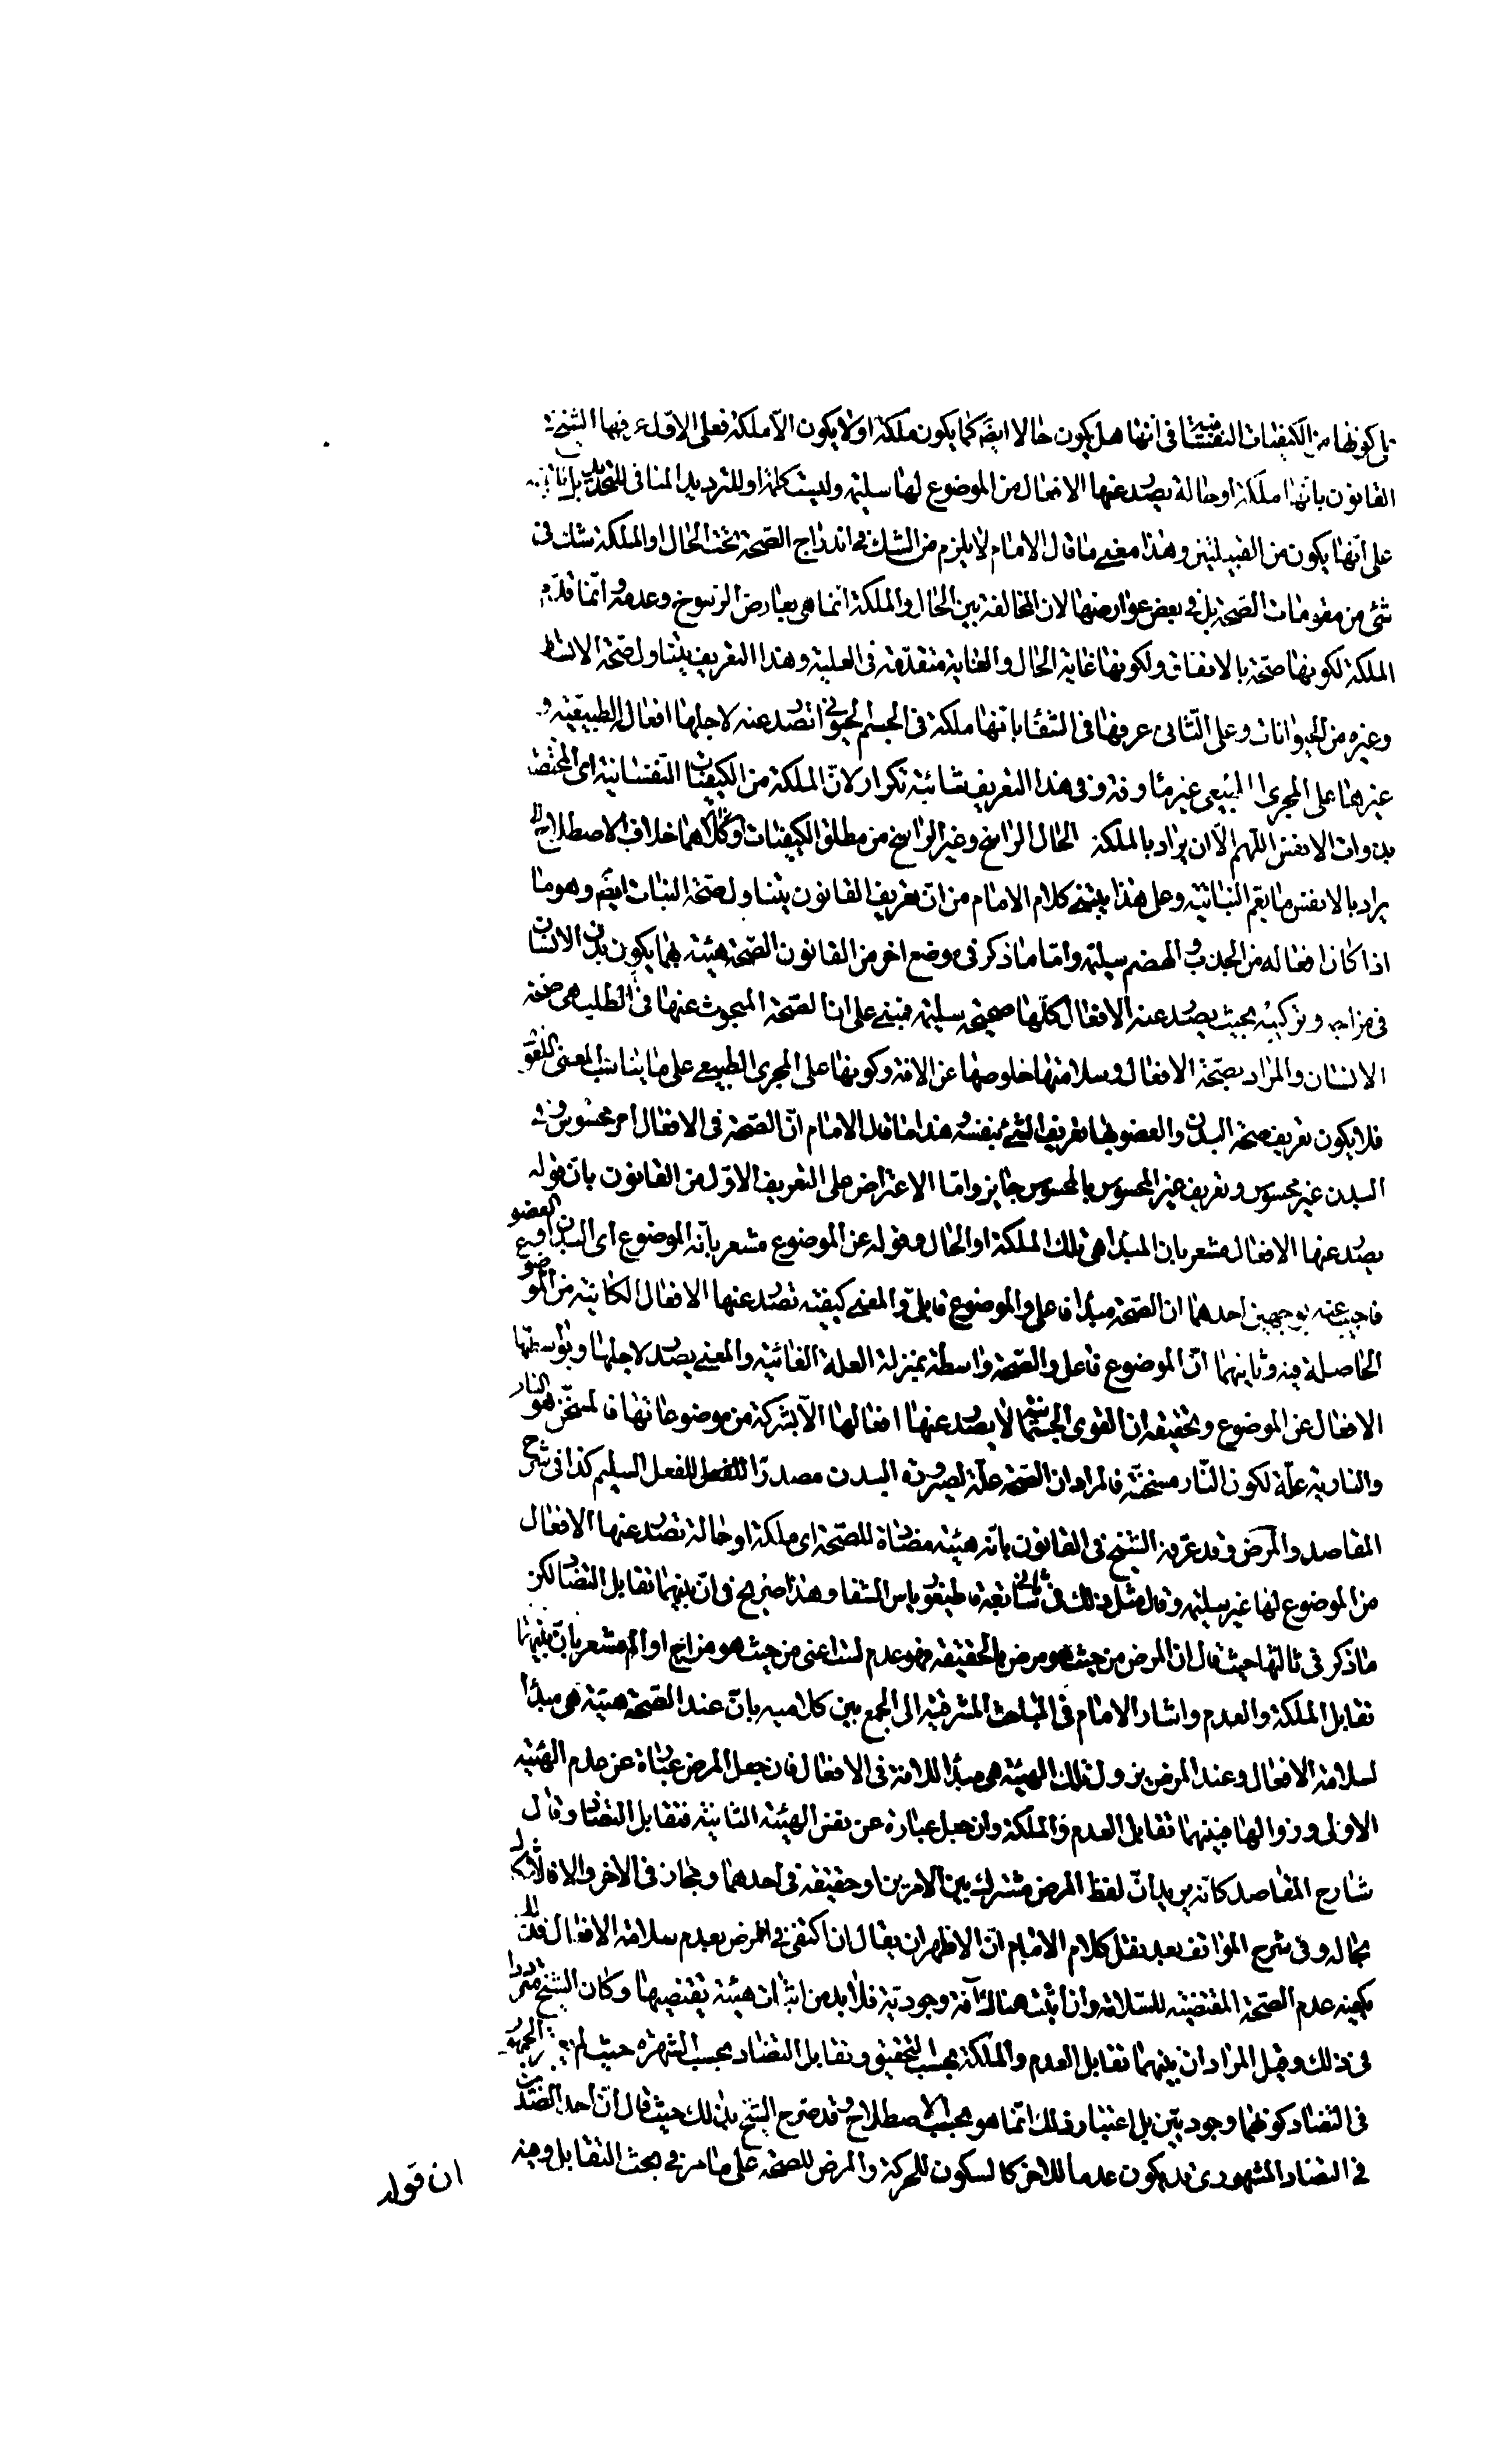 كونها من الكيفيات النفسانية في انها هل يكون حالا ايضً كما يكون ملكة اولا يكون الّا ملكة فعلى الاوّل عرفها الشيخ
القانون بانّها ملكة او حالة يصدر عنها الافعال من الموضوع لها سليمة وليست كلمة او للترديد المنافى للتحديد بل
على انّها يكون من القبيلتين وهذا معنى ما قال الامام لا يلزم من الشك فى اندراج الصّحة تحت الحال او الملكة شك فى
شئ من مقومات الصّحة بل فى بعض عوارضها لان المخالفة بين الحال والملكة انّما هى بعارض الرسوخ وعدمه وانّما قدّم
الملكة لكونها صحّة بالاتفاق ولكونها غاية الحال والغاية متقدّمة فى العلية وهذا التعريف يتناول صحّة الانسان
وغيره من الحيوانات وعلى الثّانى عرفها فى الشفا بانّها ملكة فى الجسم الحيوانى تصدر عنه لاجلها افعاله الطبيعيّة و
غيرها على المجرى الطبيعى غير مأوفة وفى هذا التعريف شائبة تكرار لانّ الملكة من الكيفيات النّفسانية اى المختصة
بذوات الانفس اللّهم الّا ان يراد بالملكة الحال الراسخ وغير الراسخ من مطلق الكيفيات وكلاهما خلاف الاصطلاح او
يراد بالانفس ما يعم النباتيّة وعلى هذا يبتنى كلام الامام من انّ تعريف القانون يتناول صحّة النبات ايضً وهو ما
اذا كان افعاله من الجذب والهضم سليمة وامّا ما ذكر فى موضع اخر من القانون الصّحة هيئة بها يكون بدن الانسان
فى مزاجه وتركيبه بحيث يصدر عنه الافعال كلّها صحيحة سليمة فمبنى على ان الصّحة المبحوث عنها فى الطلب هى صحّة
الانسان والمراد بصحّة الافعال وسلامتها خلوصها عن الافة وكونها على المجرى الطبيعى على ما يناسب المعنى اللغوى
فلا يكون تعريف صحة البدن والعضو بها تعريف الشئ بنفسه هذا ما قال الامام انّ الصّحة فى الافعال امر محسوس وفى
البدن غير محسوس وتعريف غير المحسوس بالمحسوس جايز وامّا الاعتراض على التعريف الاوّل من القانون بانّ قوله
يصدر عنها الافعال مشعر بان المبدأ هى تلك الملكة او الحال وقوله عن الموضوع مشعر بانّه الموضوع اى البدن او العضو
فاجيب عنه بوجهين احدهما ان الصّحة مبدأ فاعلى والموضوع قابلىّ والمعنى كيفيّة تصدر عنها الافعال الكائنة من الموضوع
الحاصلة فيه وثانيهما انّ الموضوع فاعل والصّحة واسطة بمنزلة العلة الغائيّة والمعنى يصدر لاجلها وبواسطتها
الافعال عن الموضوع وتحقيقه ان القوى الجسمانيّة لا يصدر عنها افعالها الّا بشركة من موضوعاتها فالمسخّن هو النار
والنارية علّة لكون النّار مسخنّة فالمراد ان الصّحة علّة لصيرورة البدن مصدرًا للفعل السليم كذا فى شرح
المقاصد والمرض وقد عرّفه الشيخ فى القانون بانّه هيئة مضادّة للصّحة اى ملكة او حالة تصدر عنها الافعال
من الموضوع لها غير سليمة وقال مثل ذلك فى سابعة قاطيغورياس الشفا وهذا صريح فى انّ بينهما تقابل التضاد لكن
ما ذكر فى ثالثها حيث قال ان المرض من حيث هو مرض بالحقيقة فهو عدم لست اعنى من حيث هو مزاج او الم مشعر بانّ بينهما
تقابل الملكة والعدم واشار الامام فى المباحث المشرقيّة الى الجمع بين كلاميه بانّ عند الصّحة هيئة هى مبدأ
لسلامة الافعال وعند المرض يزول تلك الهيئة هى مبدأ للافة فى الافعال فان جعل المرض عبارة عن عدم الهيئة
الاولى وزوالها فبينهما تقابل العدم والملكة وان جعل عبارة عن نفس الهيئة الثانية فتقابل التضاد وقال
شارح المقاصد كانّه يريد انّ لفظ المرض مشترك بين الامرين او حقيقة فى احدهما ومجاز فى الاخر والا فالاشكال
بحاله وفى شرح المواقف بعد نقل كلام الامام انّ الاظهر ان يقال ان اكتفى فى المرض بعدم سلامة الافعال فذلك
يكفيه عدم الصّحة المقتضية للسّلامة وان اثبت هناك آفة وجوديّة فلا بد من اثبات هيئة يقتضيها وكان الشيخ متردداً
فى ذلك وقيل المراد ان بينهما تقابل العدم والملكة بحسب التّحقيق وتقابل التضاد بحسب الشهرة حيث لم الجمهور
فى التضاد كونهما وجوديّين بل اعتبار ذلك انّما هو بحسب الاصطلاح وقد صرح الشيخ بذلك حيث قال انّ احد الضدّين
فى التضاد المشهورى قد يكون عدما للاخر كالسكون للحركة والمرض للصحّة على ما مرّ فى بحث التقابل وفيه
ان قوله